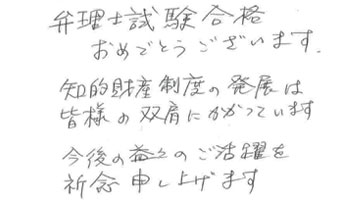 弁理士試験合格
おめでとうございます.
知的財産制度の発展は
皆様の双肩にかかっています
今後の益々のご活躍を
祈念申し上げます